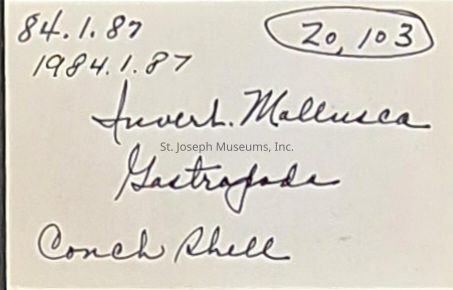 84.1.87 20,103
1984.1.87
Invert. Mallusca
St. Joseph Museums, Inc.
Gastrapoda
Conch Shell